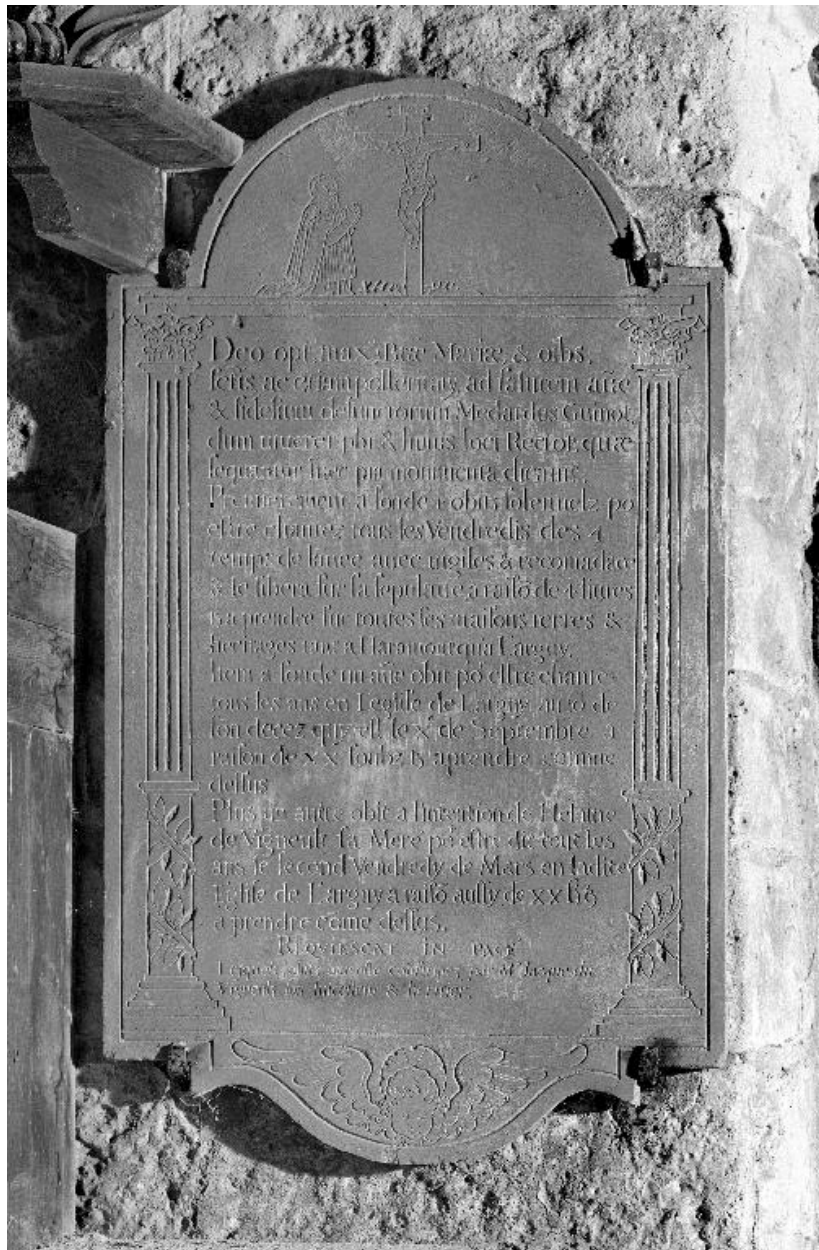 Deo opt. max. Btæ Mariæ, & oibs.
sctis ac etiam ad salutem aiæ
& fidelium defunctorum Medardes Guinot,
dum viveret pbr & huius loci Rector, quæ
sequntur hæc pia monumenta dicavit.
Premierement a fondé 4 obits solennelz po
estre chantez tous les Vendredis des 4
temps de lanee avec vigiles & recomãdaces
& le libera sur sa sepulture a raisõ de 4 livres
ts a prendre sur toutes ses maisons terres &
heritages Haramont Largny.
Item a fonde un obit põ estre chante
tous les ans en Leglise de Largny au jõ de
son decez qui est le xe de Septembre a
raison de xx soubz ts a prendre comme
dessus
Plus un autre obit a lintention de Helaine
de Vigneult sa Mere põ estre dit tout les
ans le second Vendredy de Mars en ladite
Eglise de Largny a raisõ aussy de xx
a prendre cõme dessus.
REQVIESCNT IN PACE
par Mr Jacques